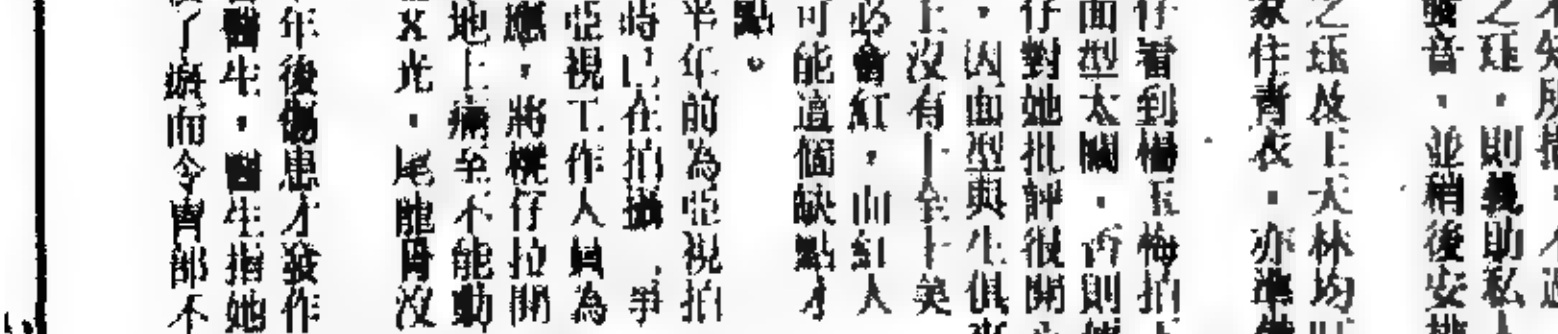 不知所措，不過
之珏，則義助私
發音，並稍後安排
之珏及王天林均
家住青衣，亦準備
仔看到楊玉梅拍
面型太闊，否則
仔對她批評很開心
，因面型與生俱來
上沒有十全十美
必會紅，而紅人
可能這個缺點才
點。
半年前為亞視拍
時已在拍攝，爭
亞視工作人員為
應，將櫈仔拉開
地上痛至不能動
X光，尾龍骨沒
年後傷患才發作
醫生，醫生指她
了瘀而令胃部不